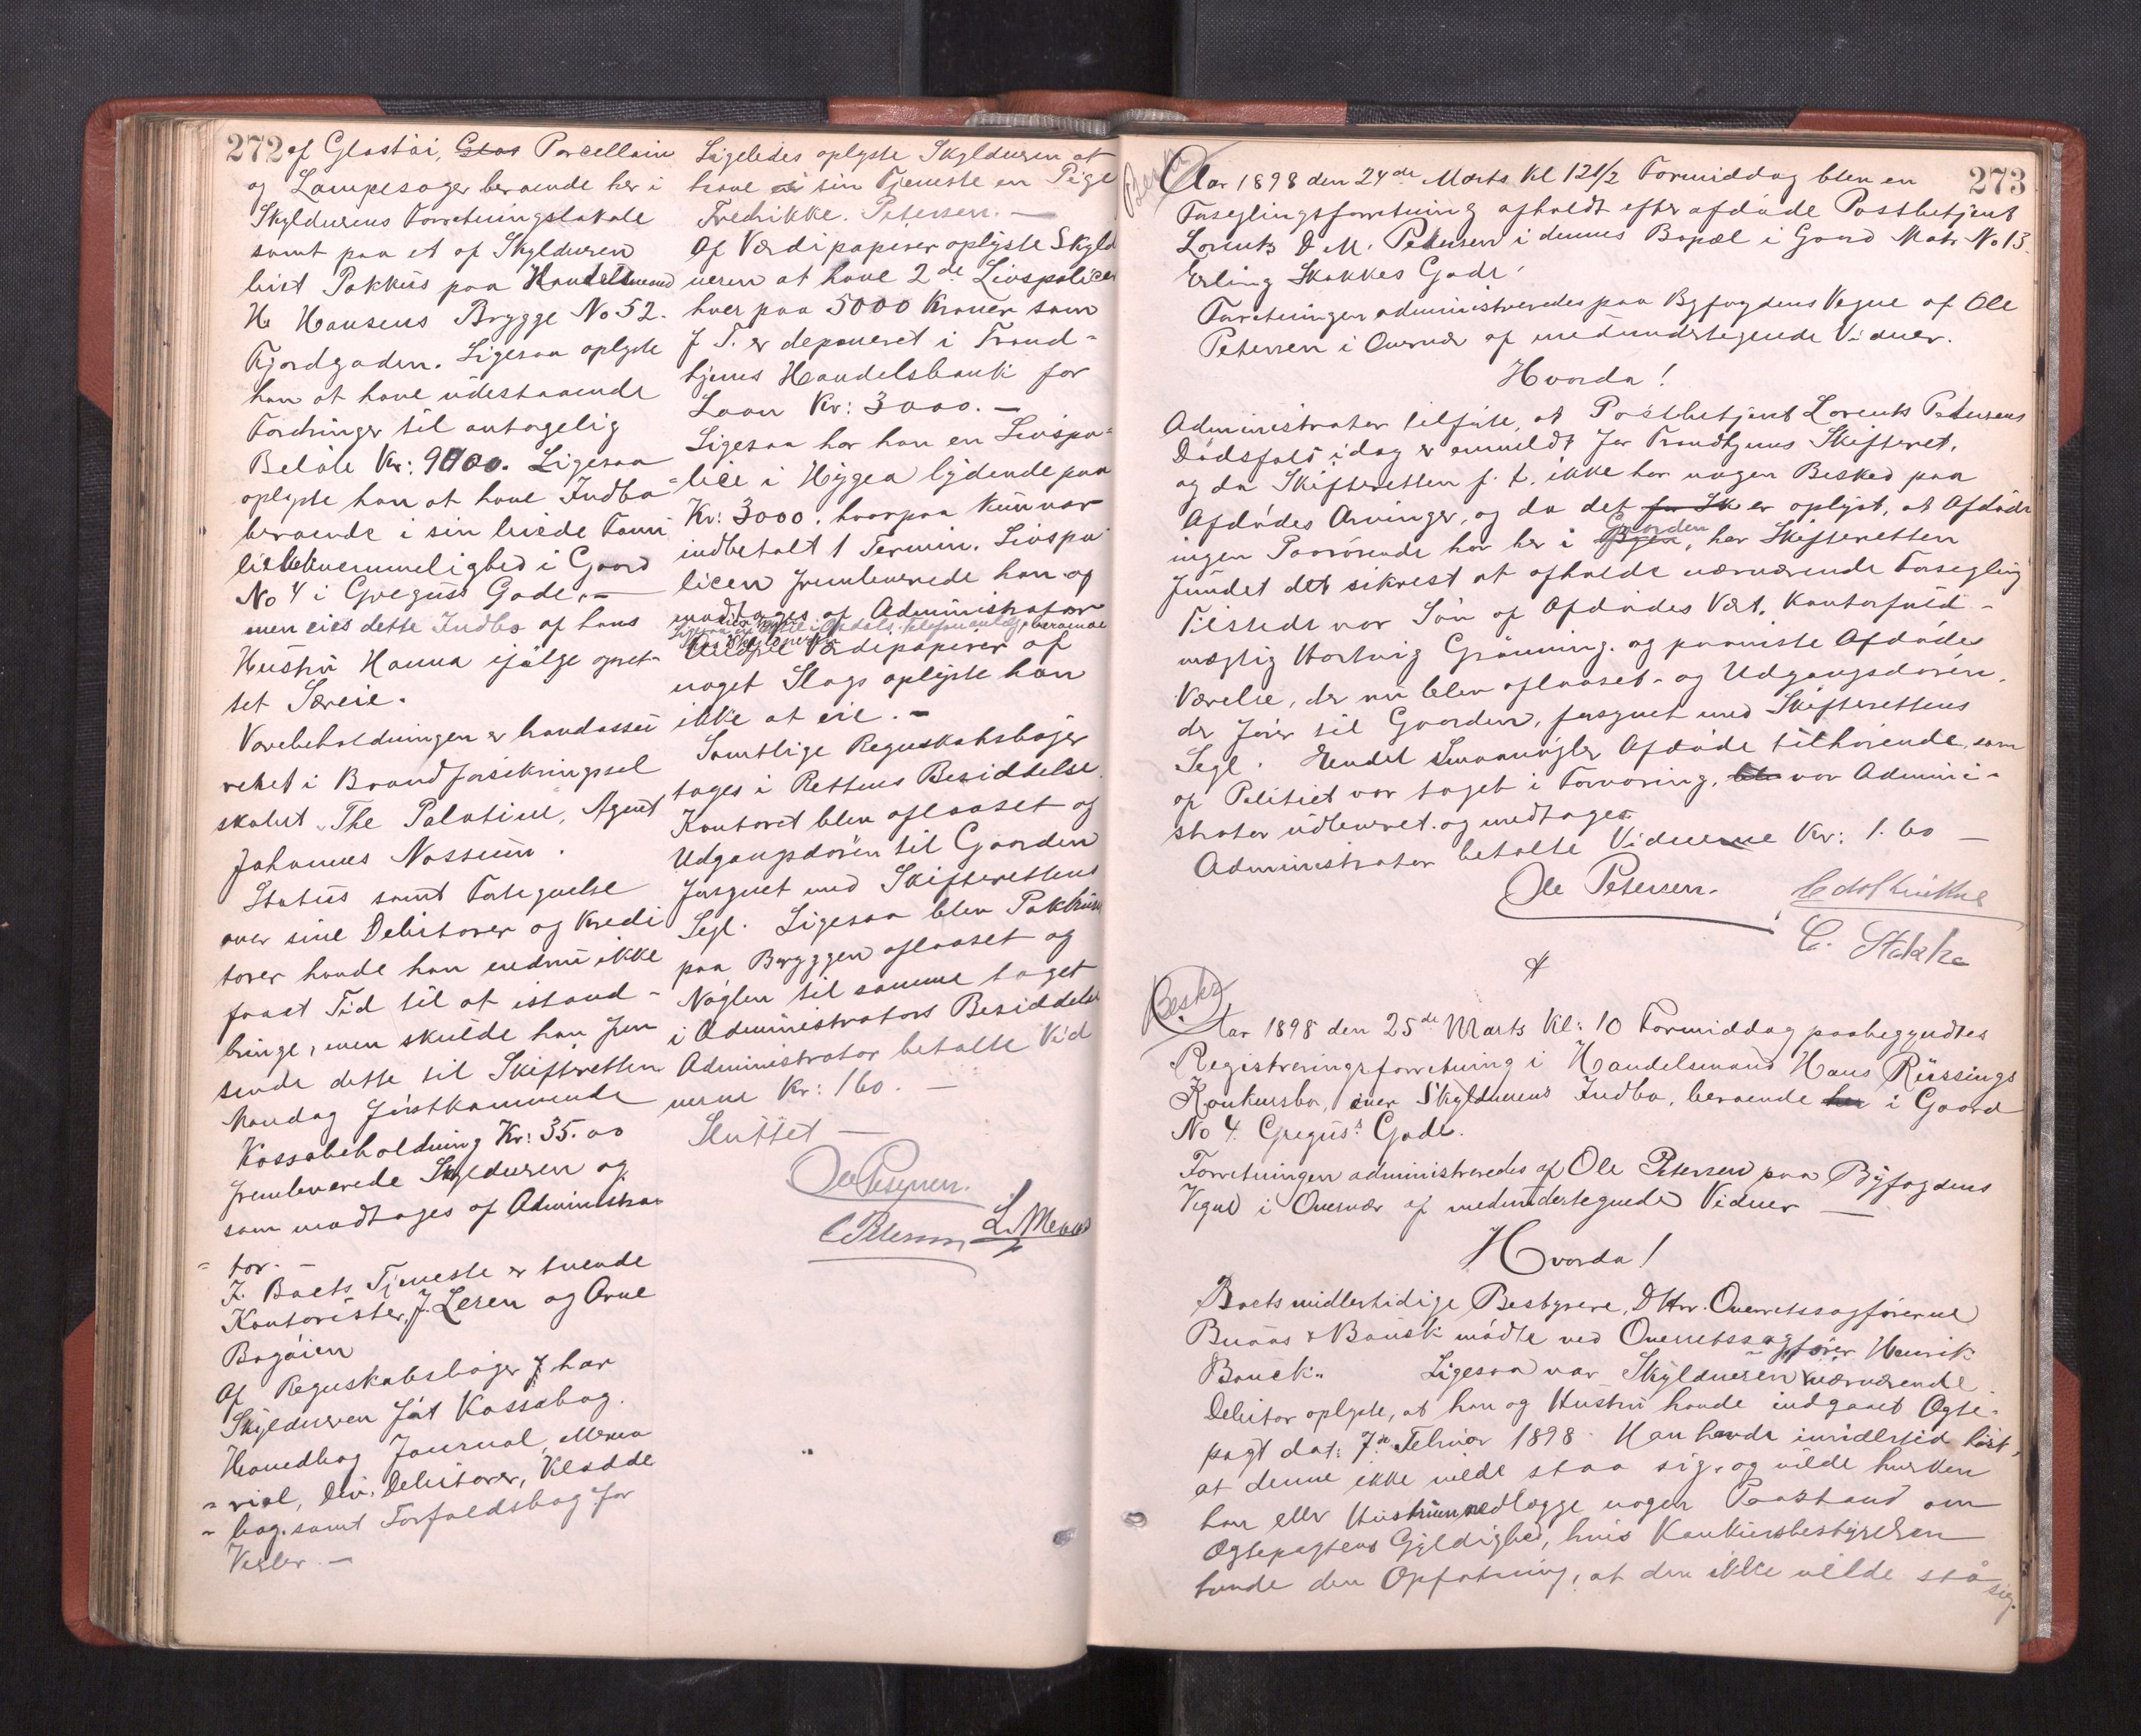 272 af Glastøi, Glas Porcellain
og Lampesager beroende her i
Skyldnerens Forretningslokale
samt paa et af Skyldneren
leiet Pakhus paa Handelsmand
H. Hansens Brygge No 52.
Fjordgaden. Ligesaa oplyste
han at have udestaaende
Fordringer til antagelig
Beløb Kr: 9000. Ligesaa
oplyste han at have Indbo
beroende i sin leiede Fami
liebekvemmelighed i Gaard
No 4 i Gregus's Gade. —
men eies dette Indbo af hans
Hustru Hanna ifølge opret-
tet Særeie.
Varebeholdningen er brandassu
reret i Brandforsikringssel
skabet "The Palatine, Agent
Johannes Nossum.
Status samt Fortegnelse
over sine Debitorer og Kredi
torer havde han endnu ikke
faaet Tid til at istand-
bringe, men skulde han frem
sende dette til Skifteretten
Mandag førstkommende
Kassabeholdning Kr: 35.00
fremleverede Skyldneren og
som modtages af Administra-
tor. —
I Boets Tjeneste er tvende
Kontorister, J. Leren og Arne
Bogøien
Af Regnskabsbøger har
Skyldneren ført Kassabog.
Hovedbog Journal, Memo
rial, Div. Debitorer, Kladde
bog. samt Forfaldsbog for
Vexler —
Ligeledes oplyste Skyldneren at
have i sin Tjeneste en Pige
Fredrikke. Petersen. —
Af Værdipapirer oplyste Skyld
neren at have 2de Livspolicer
hver paa 5000 Kroner som
f T. er deponeret i Trond-
hjems Handelsbank for
Laan Kr: 3000. —
Ligesaa har han en Livspo-
lice i Hygea lydende paa
Kr: 3000. hvorpaa kun var
indbetalt 1 Termin. Livspo
licen fremleverede han og
modtages af Administrator
Værdipapirer af
noget Slags oplyste han
ikke at eie. —
Samtlige Regnskabsbøger
tages i Rettens Besiddelse.
Kontoret blev aflaaset og
Udgangsdøren til Gaarden
forsynet med Skifterettens
Segl. Ligesaa blev Pakhuset
paa Bryggen aflaaset og
Nøglen til samme taget
i Administrators Besiddelse
Administrator betalte Vid
nerne Kr: 1.60. —
Sluttet —
Ole Petersen.
C Petersen L. Meraas
273
Beskr
Aar 1898 den 24de Marts Kl 12 1/2 Formiddag blev en
Forseglingsforretning afholdt efter afdøde Postbetjent
Lorents D. M. Petersen i dennes Bopæl i Gaard Matr No 13.
Erling Skakkes Gade.
Forretningen administreredes paa Byfogdens Vegne af Ole
Petersen i Overvær af medundertegnede Vidner.
Hvorda!
Administrator tilførte, at Postbetjent Lorents Petersens
Dødsfald idag er anmeldt for Trondhjems Skifteret,
og da Skifteretten f. t. ikke har nogen Besked paa
Afdødes Arvinger, og da det for Sk er oplyst, at Afdøde
ingen Paarørende har her i Byen Gaarden, har Skifteretten
fundet det sikrest at afholde nærværende Forsegling
Tilstede var Søn af Afdødes Vært. Kontorfuld-
mægtig Hartvig Grønning. og paaviste Afdødes
Værelse, der nu blev aflaaset - og Udgangsdøren,
der fører til Gaarden, forsynet med Skifterettens
Segl. Endel Smaanøgler Afdøde tilhørende, som
af Politiet var taget i Forvaring, ble var Admini-
strator udleveret. og medtages
Administrator betalte Vidnerne Kr: 1.60 —
Ole Petersen.
C. Stakke
Beskr
Aar 1898 den 25de Marts Kl: 10 Formiddag paabegyndtes
Registreringsforretning i Handelsmand Hans Rüssings
Konkursbo, over Skyldnerens Indbo, beroende her i Gaard
No 4. Gregus's Gade.
Forretningen administreredes af Ole Petersen paa Byfogdens
Vegne i Overvær af medundertegnede Vidner —
Hvorda!
Boets midlertidige Bestyrere, DHrr. Overretssagførerne
Buaas & Bauck mødte ved Overretssagfører Henrik
Bauck. Ligesaa var Skyldneren nærværende.
Debitor oplyste, at han og Hustru havde indgaaet Ægte-
pagt dat: 7de Februar 1898. Han havde imidlertid læst,
at denne ikke vilde staa sig, og vilde hverken
han eller Hustruen nedlægge nogen Paastand om
Ægtepagtens Gyldighed, hvis Konkursbestyrelsen
havde den Opfatning, at den ikke vilde stå sig.